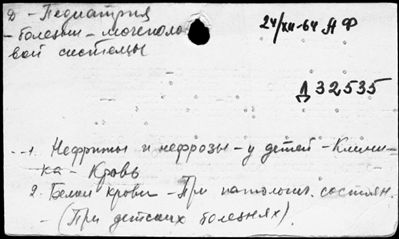 Д - Педиатрия
- болезни - мочеполо-
вой системы
24/XII-64 Я Ф
Д 32535
1. Нефриты и нефрозы - у детей - Клини-
ка - Кровь
2. Белки крови - При патологич. состоян.
- (При детских болезнях).